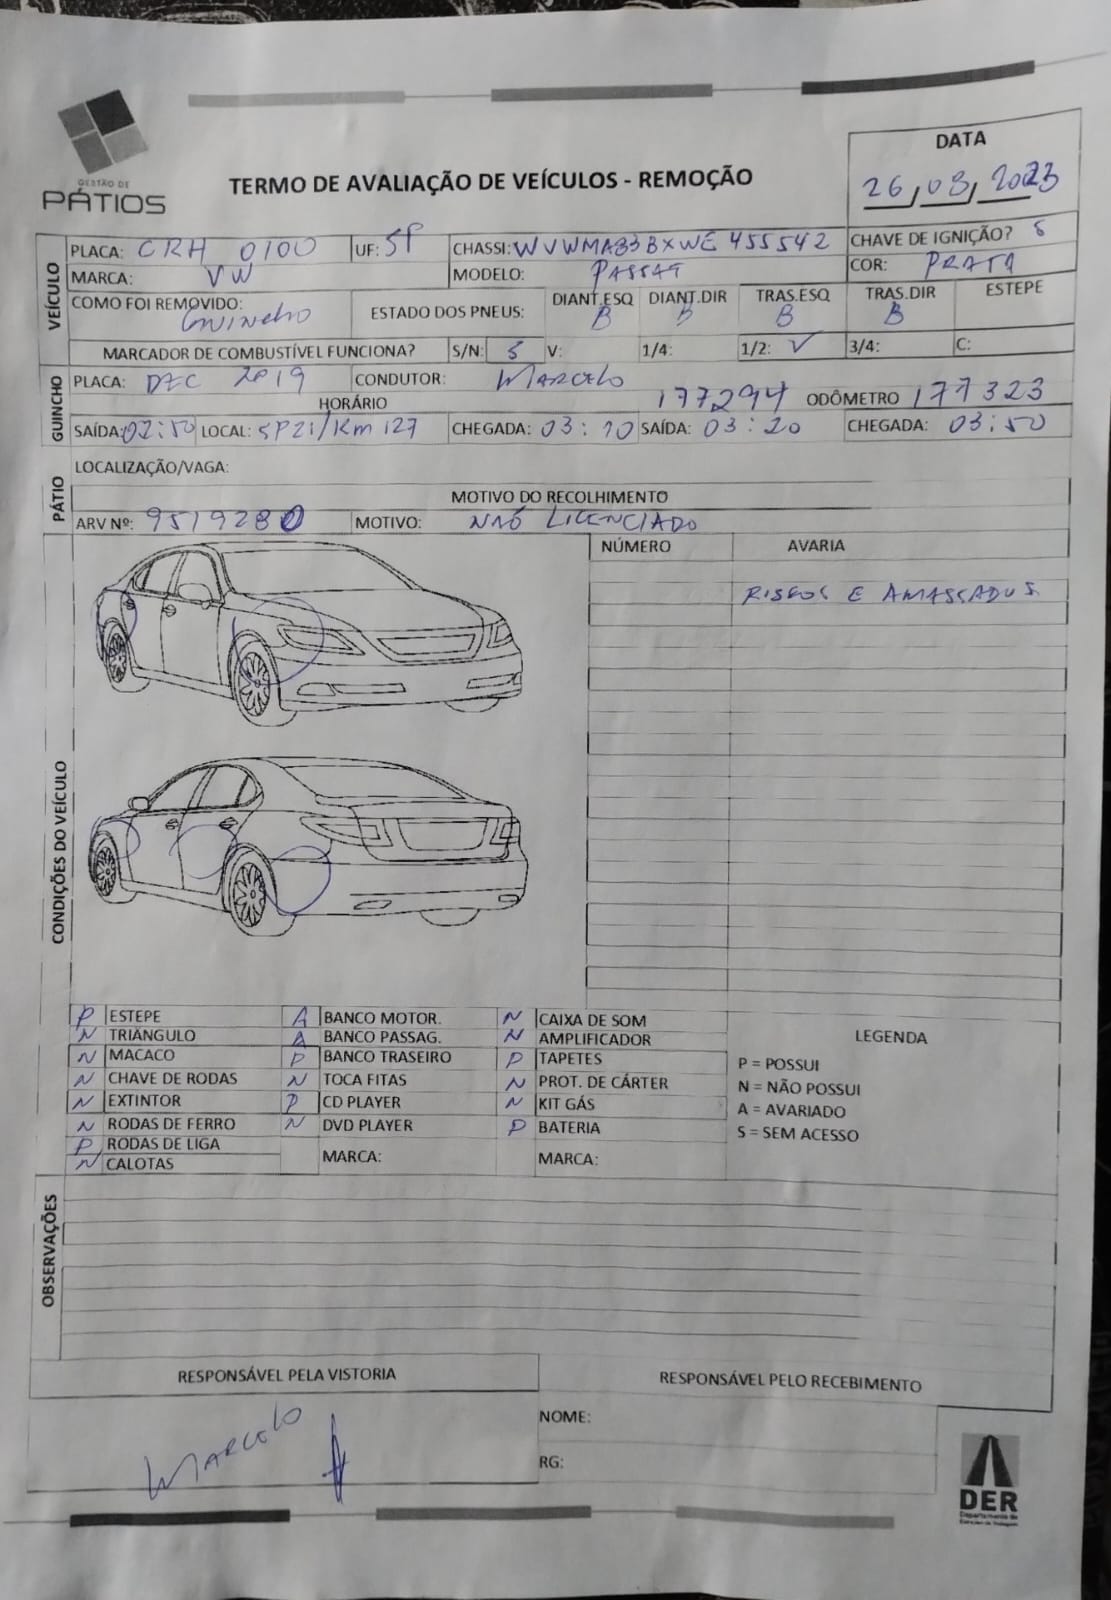 GESTÃO DE
PÁTIOS
TERMO DE AVALIAÇÃO DE VEÍCULOS - REMOÇÃO
DATA
26/03/2023
VEÍCULO
PLACA: CRH 0100 UF: SP CHASSI: WVWMA83BXWE455542 CHAVE DE IGNIÇÃO? S
MARCA: VW MODELO: PASSAT COR: PRATA
COMO FOI REMOVIDO: GUINCHO ESTADO DOS PNEUS: DIANT.ESQ B DIANT.DIR B TRAS.ESQ B TRAS.DIR B ESTEPE
MARCADOR DE COMBUSTÍVEL FUNCIONA? S/N: S V: 1/4: 1/2: ✓ 3/4: C:
GUINCHO
PLACA: DZC 2019 CONDUTOR: MARCELO
HORÁRIO 177294 ODÔMETRO 177323
SAÍDA: 02:50 LOCAL: SP21/Km 127 CHEGADA: 03:10 SAÍDA: 03:20 CHEGADA: 03:50
PÁTIO
LOCALIZAÇÃO/VAGA:
MOTIVO DO RECOLHIMENTO
ARV Nº: 9519280 MOTIVO: NÃO LICENCIADO
CONDIÇÕES DO VEÍCULO
NÚMERO AVARIA
RISCOS E AMASSADOS
P ESTEPE A BANCO MOTOR. N CAIXA DE SOM
N TRIÂNGULO A BANCO PASSAG. N AMPLIFICADOR
N MACACO P BANCO TRASEIRO P TAPETES
N CHAVE DE RODAS N TOCA FITAS N PROT. DE CÁRTER
N EXTINTOR P CD PLAYER N KIT GÁS
N RODAS DE FERRO N DVD PLAYER P BATERIA
P RODAS DE LIGA MARCA: MARCA:
N CALOTAS
LEGENDA
P = POSSUI
N = NÃO POSSUI
A = AVARIADO
S = SEM ACESSO
OBSERVAÇÕES
RESPONSÁVEL PELA VISTORIA RESPONSÁVEL PELO RECEBIMENTO
MARCELO
NOME:
RG:
DER
Departamento de
Estradas de Rodagem